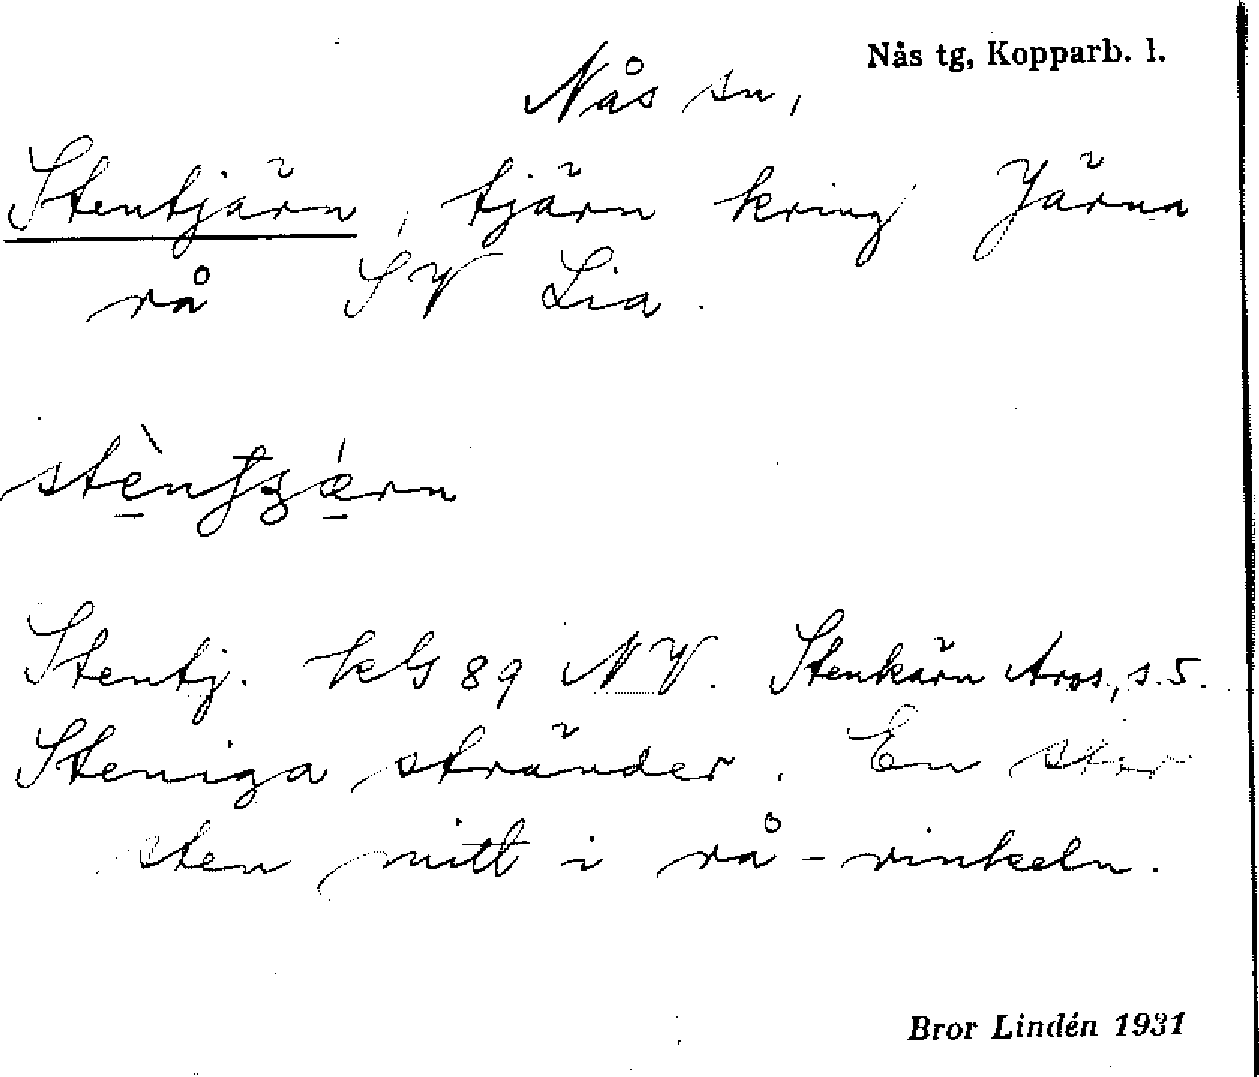 Nås tg, Kopparb. l.
Nås sn,
Stentjärn, tjärn kring Järna
rå SV Lia.
Stentj. kG 89 NV. Stenkärn Aros., s. 5.
Steniga stränder. En stor
sten mitt i rå-vinkeln.
Bror Lindén 1931